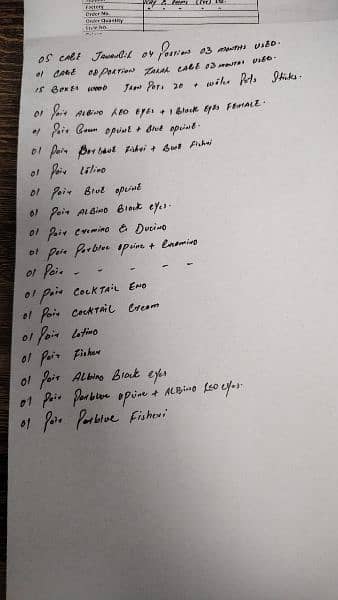 Factory
Order No.
Order Quantity
Style No.
05 CAGE 04 PORTION 03 MONTHS USED.
01 CAGE 08 PORTION CAGE 03 MONTHS USED.
15 BOXES WOOD POTS 20 + WATER POTS Sticks.
01 Pair ALBINO RED EYES + 1 Black Eyes FEMALE.
01 Pair OPLINE + BLUE OPLINE.
01 Pair Fisheri + Blue Fisheri
01 Pair Lotino
01 Pair BLUE OPLINE
01 Pair ALBINO Black eyes.
01 Pair Cremino & Ducino
01 Pair Parblue opline + Cremino
01 Pair - - - - -
01 Pair COCKTAIL ENO
01 Pair COCKTAIL Cream
01 Pair Lotino
01 Pair Fisher
01 Pair Albino Black eyes
01 Pair Parblue opline + ALBINO RED eyes.
01 Pair Parblue Fisheri